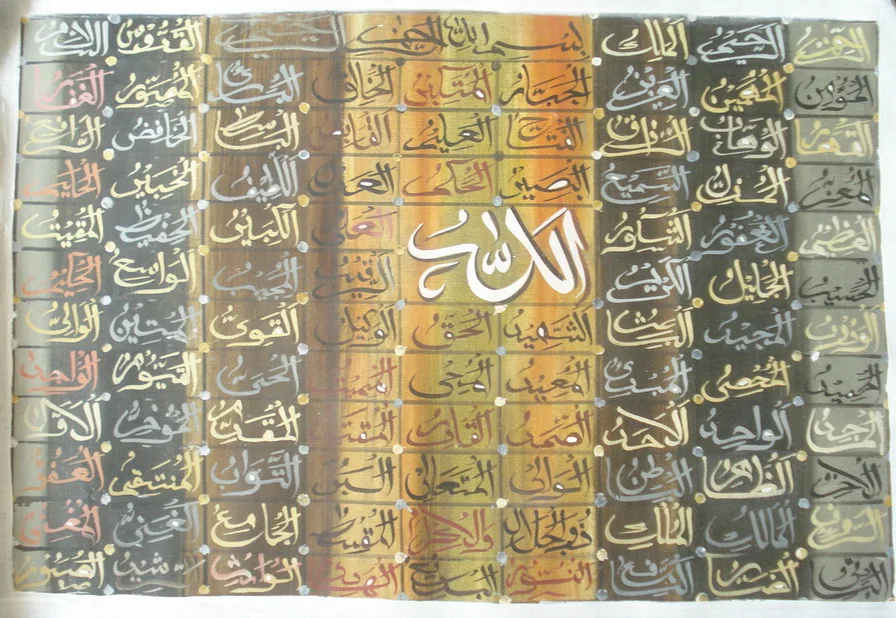 بسم الله الرحمن الرحيم الملك القدوس السلام
المؤمن المهيمن العزيز الجبار المتكبر الخالق البارئ المصور الغفار
القهار الوهاب الرزاق الفتاح العليم القابض الباسط الخافض الرافع
المعز المذل السميع البصير الحكم العدل اللطيف الخبير الحليم
العظيم الغفور الشكور الله العلي الكبير الحفيظ المقيت
الحسيب الجليل الكريم الرقيب المجيب الواسع الحكيم
الودود المجيد الباعث الشهيد الحق الوكيل القوي المتين الولي
الحميد المحصي المبدئ المعيد المحيي المميت الحي القيوم الواجد
الواحد الاحد الصمد القادر المقتدر المقدم المؤخر الاول
الآخر الظاهر الباطن الوالي المتعالي البر التواب المنتقم العفو
الرؤوف مالك الملك ذو الجلال والاكرام المقسط الجامع الغني المغني
النافع النور الهادي البديع الوارث الرشيد الصبور